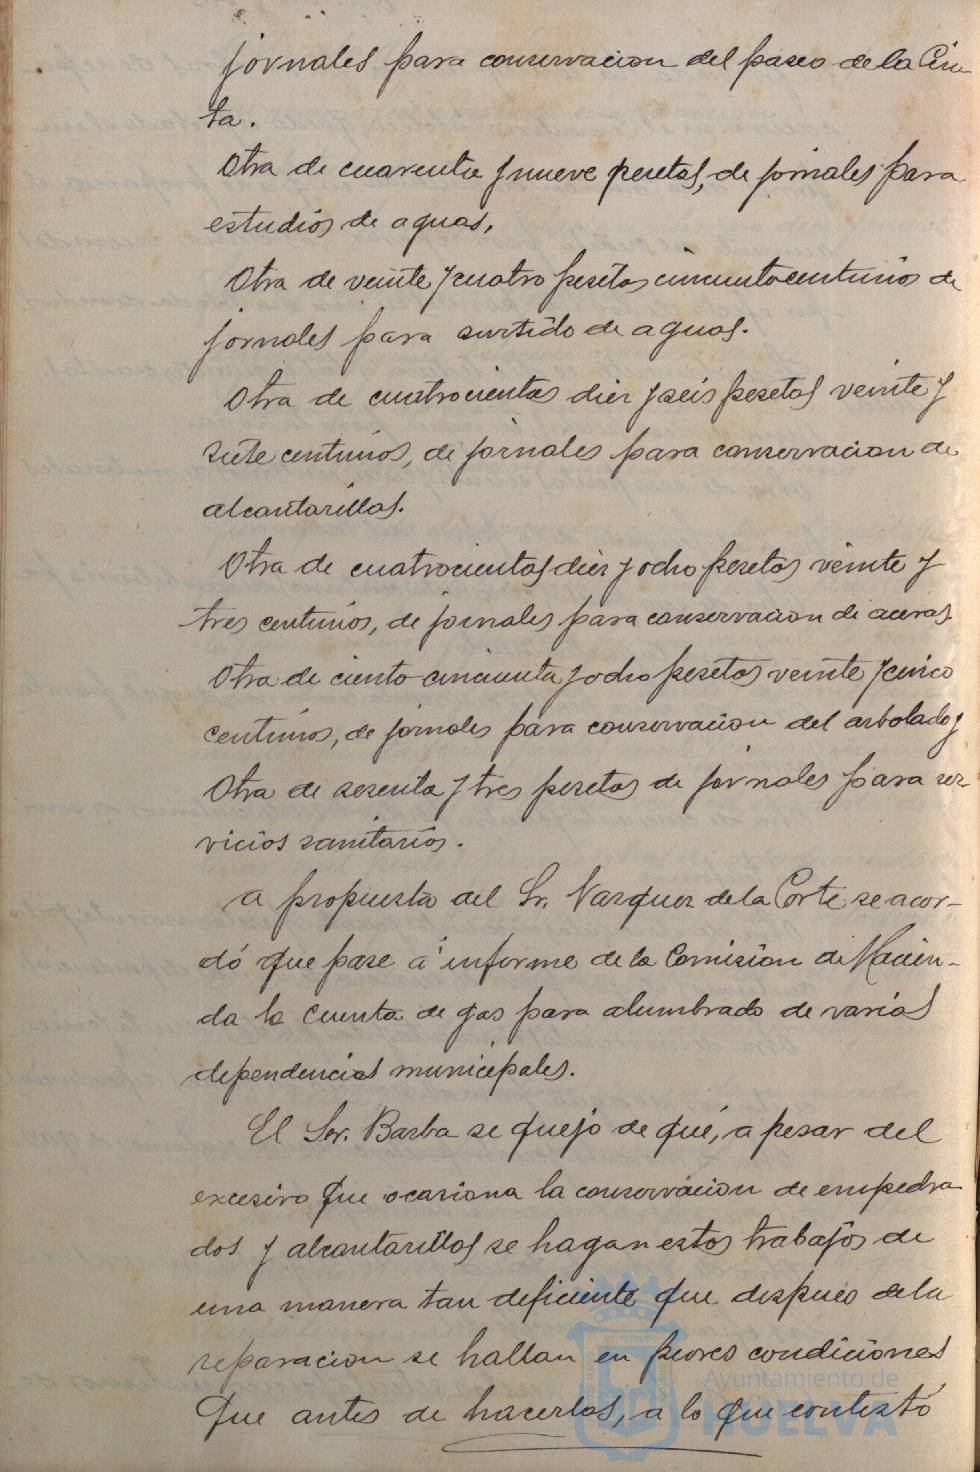 jornales para conservacion del paseo de la Cin-
ta.
Otra de cuarenta y nueve pesetas, de jornales para
estudios de aguas.
Otra de veinte y cuatro pesetas cincuenta centimos de
jornales para surtido de aguas.
Otra de cuatrocientas diez y seis pesetas veinte y
siete centimos, de jornales para conservacion de
alcantarillas.
Otra de cuatrocientas diez y ocho pesetas veinte y
tres centimos, de jornales para conservacion de aceras.
Otra de ciento cincuenta y ocho pesetas veinte y cinco
centimos, de jornales para conservacion del arbolado y
Otra de sesenta y tres pesetas de jornales para ser-
vicios sanitarios.
A propuesta del Sr. Vazquez de la Corte se acor-
dó que pase á informe de la Comision de Hacien-
da la cuenta de gas para alumbrado de varias
dependencias municipales.
El Sor. Barba se quejó de que, a pesar del
excesivo que ocasiona la conservacion de empedra
dos y alcantarillas se hagan estos trabajos de
una manera tan deficiente que despues de la
reparacion se hallan en peores condiciones
que antes de hacerlos, a lo que contestó
Ayuntamiento de
HUELVA